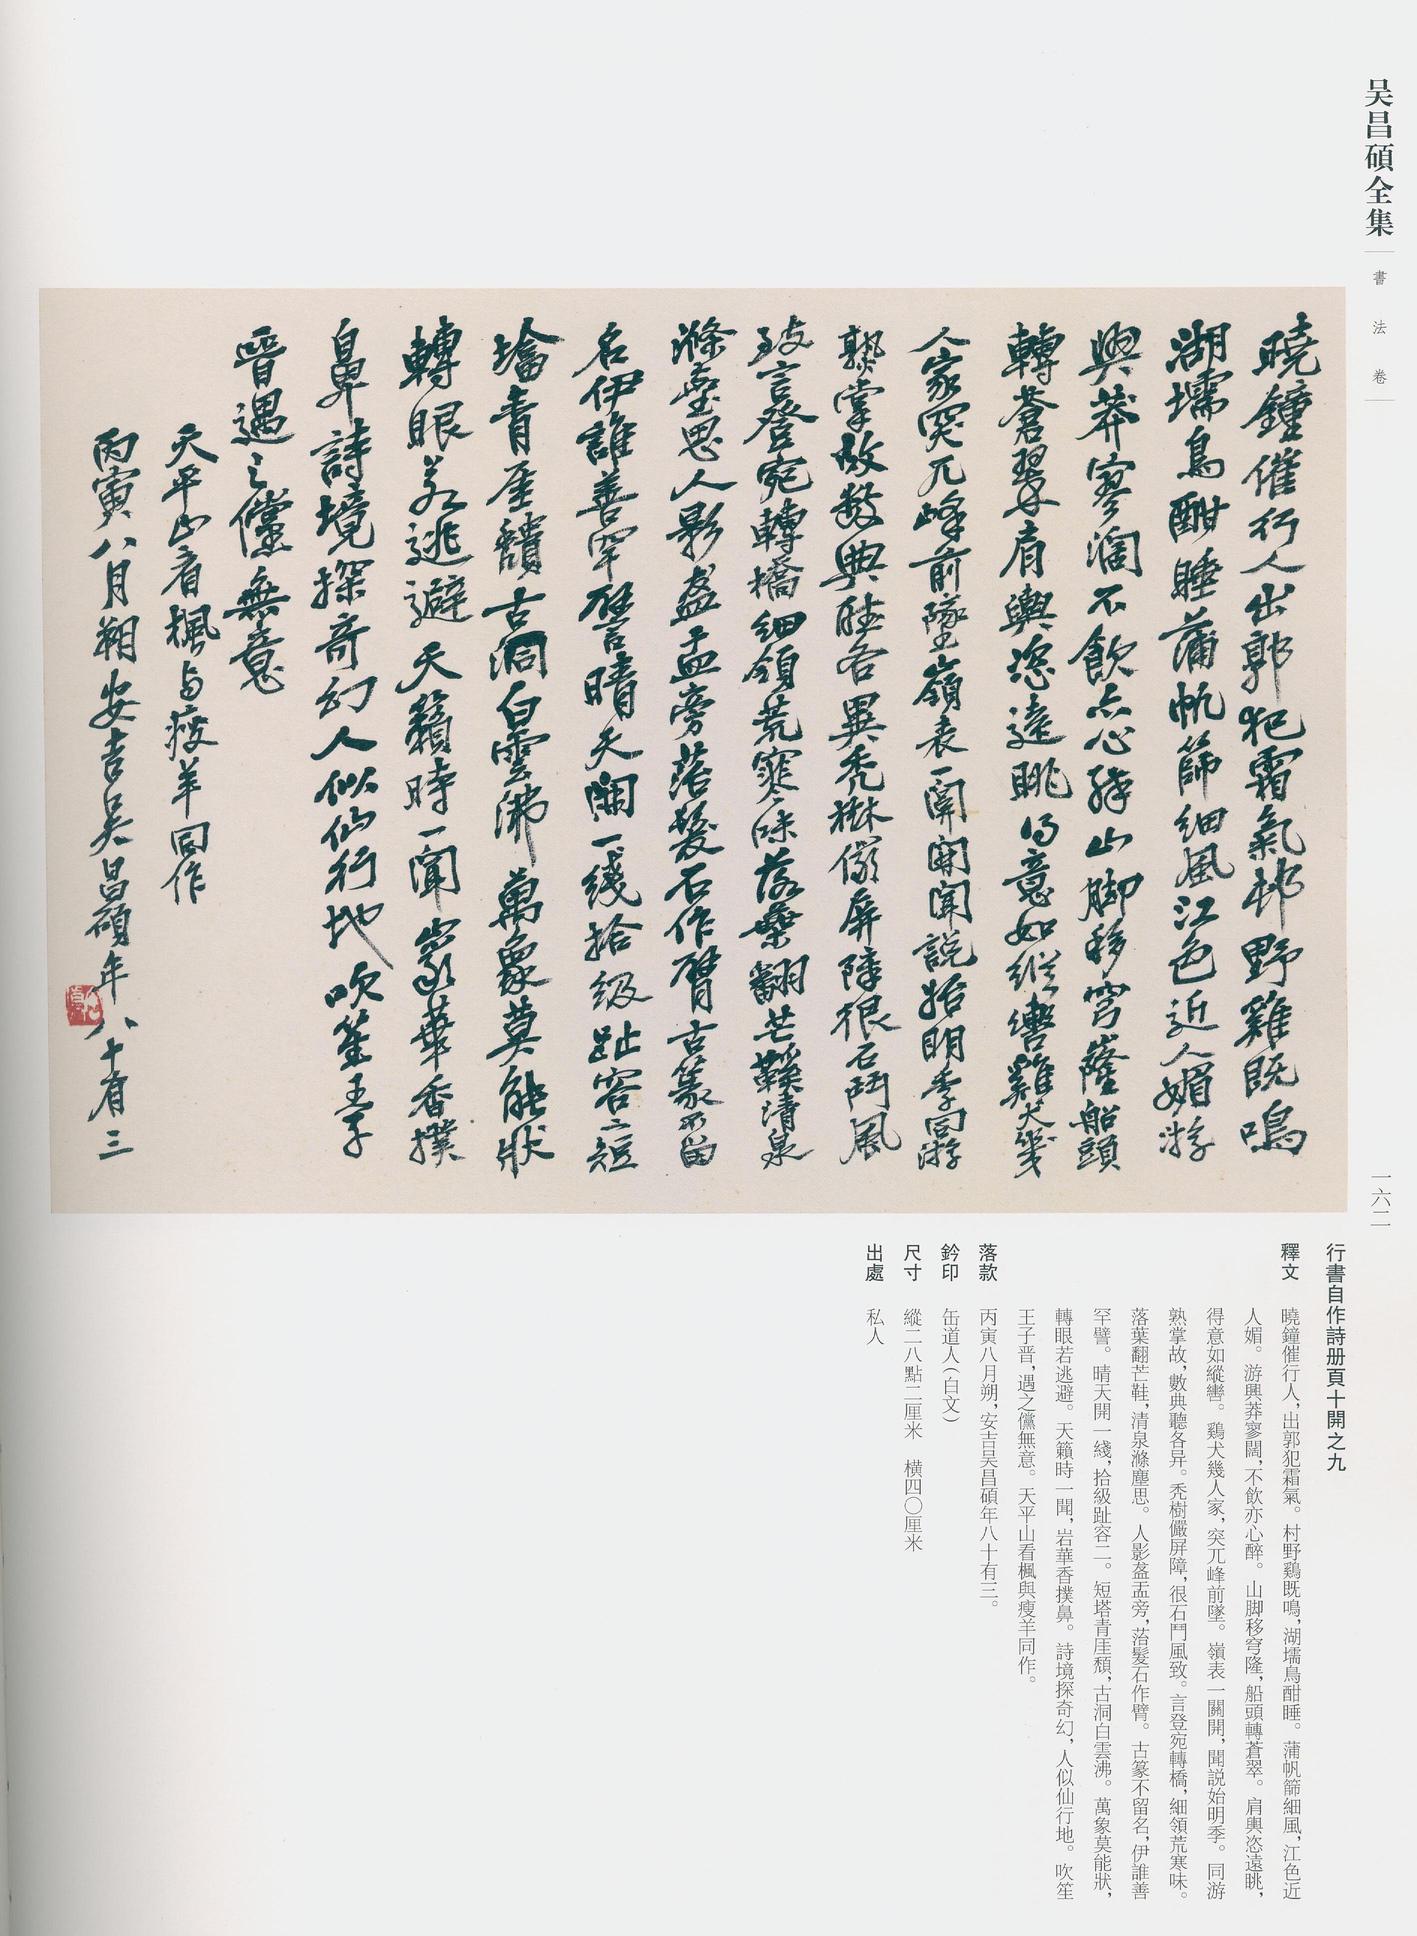 吴昌碩全集
書法卷
一六二
曉鐘催行人出郭犯霜氣邨野雞既鳴
湖壖鳥酣睡蒲帆篩細風江色近人媚游
興莽寥闊不飲亦心醉山脚移穹窿船頭
轉蒼翠肩輿恣遠眺得意如縱轡雞犬幾
人家突兀峰前墜嶺表一關開聞説始明季同游
熟掌故數典聽各異秃樹儼屏障很石鬥風
致言登宛轉橋細領荒寒味落葉翻芒鞵清泉
滌塵思人影盋盂旁落髮石作臂古篆不留
名伊誰善罕譬晴天開一綫拾級趾容二短
墖青厓頹古洞白雲沸萬象莫能狀
轉眼若逃避天籟時一聞岩華香撲
鼻詩境探奇幻人似仙行地吹笙王子
晋遇之儻無意
天平山看楓与瘦羊同作
丙寅八月朔安吉吴昌碩年八十有三
行書自作詩册頁十開之九
釋文
曉鐘催行人，出郭犯霜氣。村野鷄既鳴，湖壖鳥酣睡。蒲帆篩細風，江色近
人媚。游興莽寥闊，不飲亦心醉。山脚移穹隆，船頭轉蒼翠。肩輿恣遠眺，
得意如縱轡。鷄犬幾人家，突兀峰前墜。嶺表一關開，聞説始明季。同游
熟掌故，數典聽各异。秃樹儼屏障，很石鬥風致。言登宛轉橋，細領荒寒味。
落葉翻芒鞋，清泉滌塵思。人影盋盂旁，落髮石作臂。古篆不留名，伊誰善
罕譬。晴天開一綫，拾級趾容二。短塔青厓頹，古洞白雲沸。萬象莫能狀，
轉眼若逃避。天籟時一聞，岩華香撲鼻。詩境探奇幻，人似仙行地。吹笙
王子晋，遇之儻無意。天平山看楓與瘦羊同作。
落款
丙寅八月朔，安吉吴昌碩年八十有三。
鈐印
缶道人（白文）
尺寸
縱二八點二厘米　横四〇厘米
出處
私人